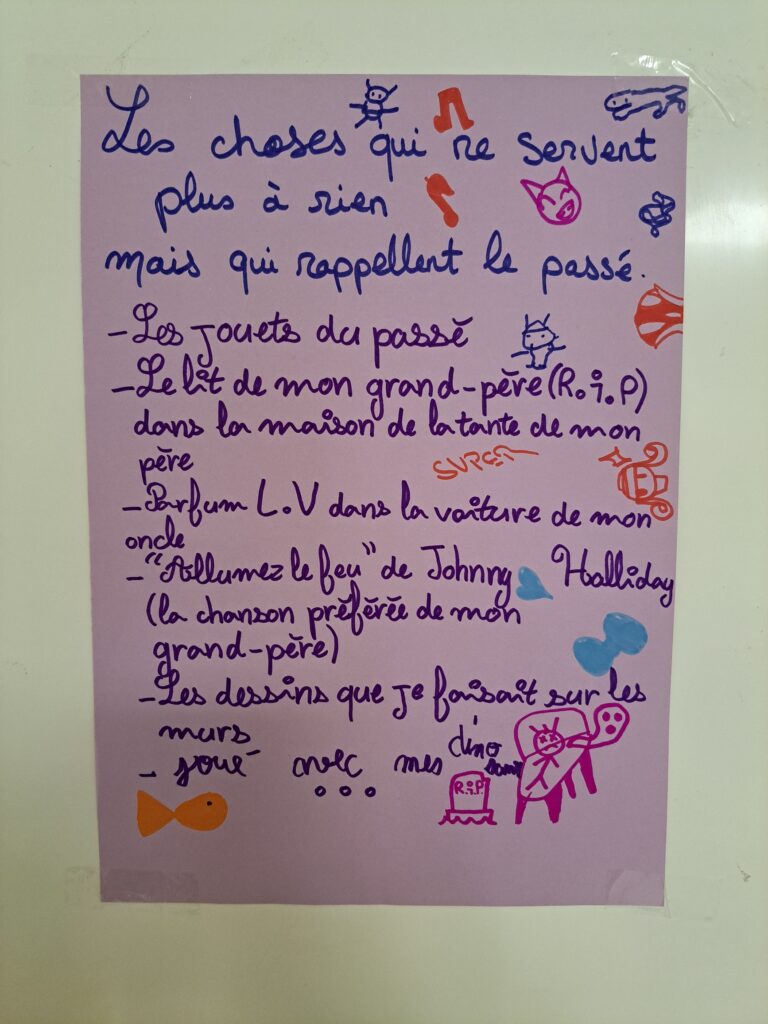 Les choses qui ne servent
plus à rien
mais qui rappellent le passé.
- Les jouets du passé
- Le lit de mon grand-père (R.i.P)
dans la maison de la tante de mon
père
SUPER
- Parfum L.V dans la voiture de mon
oncle
- "Allumez le feu" de Johnny Halliday
(la chanson préférée de mon
grand-père)
- Les dessins que je faisait sur les
murs
- joué avec mes dino
...
R.i.P.